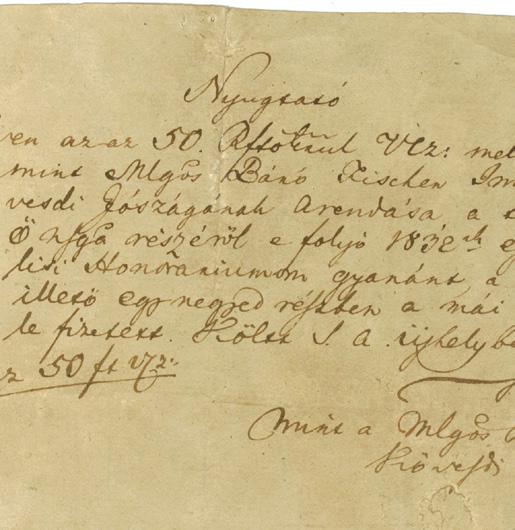 Nyugtató
ven az az 50. Rftokrul Vcz: mel
mint Mlgos Báró Fischer Im
vesdi Jószágának Arendása a
Ő nsga részéről e folyó 1832ik
lisi Honorariumom gyanánt a
illető egy negyed részben a mái
le fizetett. Költt S. A. Ujhelybe
az 50 ft Vz:
mint a Mlgos
Kövesdi